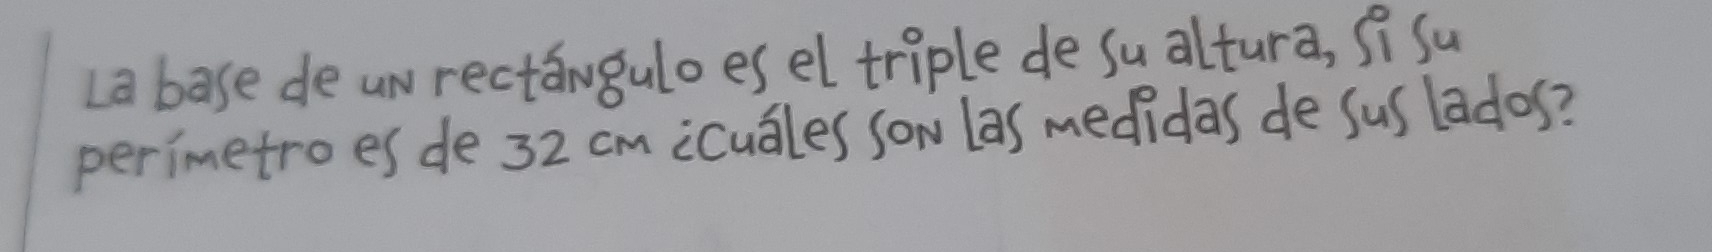 La base de un rectángulo es el triple de su altura, si su
perímetro es de 32 cm ¿cuáles son las medidas de sus lados?